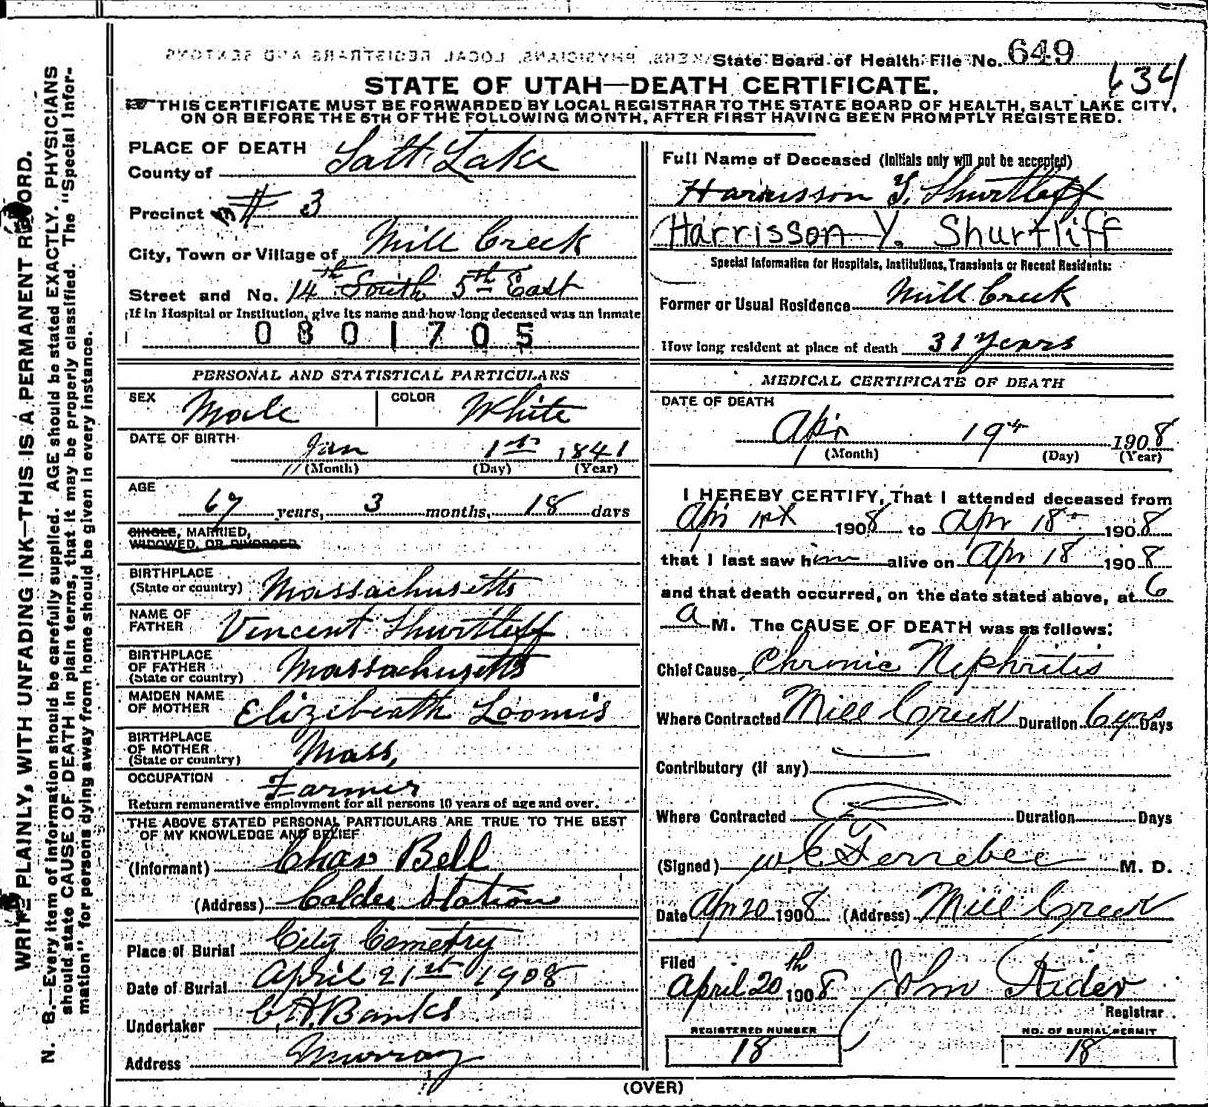 State Board of Health File No. 649
634
STATE OF UTAH—DEATH CERTIFICATE.
THIS CERTIFICATE MUST BE FORWARDED BY LOCAL REGISTRAR TO THE STATE BOARD OF HEALTH, SALT LAKE CITY,
ON OR BEFORE THE 5TH OF THE FOLLOWING MONTH, AFTER FIRST HAVING BEEN PROMPTLY REGISTERED.
WRITE PLAINLY, WITH UNFADING INK—THIS IS A PERMANENT RECORD.
N. B.—Every item of information should be carefully supplied. AGE should be stated EXACTLY. PHYSICIANS
should state CAUSE OF DEATH in plain terms, that it may be properly classified. The "Special Infor-
mation" for persons dying away from home should be given in every instance.
PLACE OF DEATH
County of Salt Lake
Precinct # 3
City, Town or Village of Mill Creek
Street and No. 14th South 5th East
If in Hospital or Institution, give its name and how long deceased was an inmate
0801705
PERSONAL AND STATISTICAL PARTICULARS
SEX Male COLOR White
DATE OF BIRTH Jan 1st 1841
(Month) (Day) (Year)
AGE
67 years, 3 months, 18 days
SINGLE, MARRIED,
WIDOWED, OR DIVORCED
BIRTHPLACE
(State or country) Massachusetts
NAME OF
FATHER Vincent Shurtleff
BIRTHPLACE
OF FATHER
(State or country) Massachusetts
MAIDEN NAME
OF MOTHER Elizebeath Loomis
BIRTHPLACE
OF MOTHER
(State or country) Mass,
OCCUPATION Farmer
Return remunerative employment for all persons 10 years of age and over.
THE ABOVE STATED PERSONAL PARTICULARS ARE TRUE TO THE BEST
OF MY KNOWLEDGE AND BELIEF
(Informant) Chas Bell
(Address) Calder Station
Place of Burial City Cemetry
Date of Burial April 21st 1908
Undertaker Banks
Address Murray
Full Name of Deceased (Initials only will not be accepted)
Harrisson Y. Shurtleff
Harrisson Y. Shurtliff
Special Information for Hospitals, Institutions, Transients or Recent Residents:
Former or Usual Residence Mill Creek
How long resident at place of death 31 Years
MEDICAL CERTIFICATE OF DEATH
DATE OF DEATH
Apr 19 1908
(Month) (Day) (Year)
I HEREBY CERTIFY, That I attended deceased from
Apr 1st 1908 to Apr 18 1908
that I last saw him alive on Apr 18 1908
and that death occurred, on the date stated above, at 6
a M. The CAUSE OF DEATH was as follows:
Chief Cause Chronic Nephritis
Where Contracted Mill Creek Duration 6 yrs Days
Contributory (if any)
Where Contracted Duration Days
(Signed) W C Ferrebee M. D.
Date Apr 20 1908 (Address) Mill Creek
Filed
April 20th 1908 John
Registrar
REGISTERED NUMBER
18
NO. OF BURIAL PERMIT
18
(OVER)